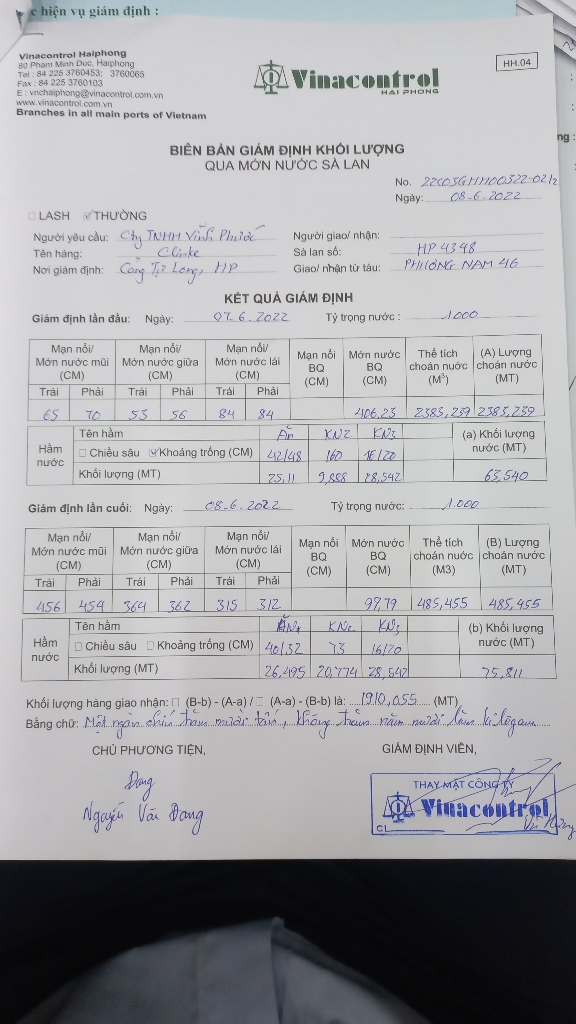 c hiện vụ giám định :
Vinacontrol Haiphong
80 Pham Minh Duc, Haiphong
Tel : 84 225 3760453; 3760065
Fax : 84 225 3760103
E : vnchaiphong@vinacontrol.com.vn
www.vinacontrol.com.vn
Branches in all main ports of Vietnam
Vinacontrol
HAI PHONG
HH.04
BIÊN BẢN GIÁM ĐỊNH KHỐI LƯỢNG
QUA MỚN NƯỚC SÀ LAN
No. 22C03GHH00322-02/2
Ngày: 08-6.2022
LASH THƯỜNG
Người yêu cầu: Cty TNHH Vĩnh Phước Người giao/ nhận:
Tên hàng: Clinke Sà lan số: HP 4348
Nơi giám định: Cảng Tự Long, HP Giao/ nhận từ tàu: PHƯƠNG NAM 46
KẾT QUẢ GIÁM ĐỊNH
Giám định lần đầu: Ngày: 07.6.2022 Tỷ trọng nước : 1.000
Mạn nổi/ Mớn nước mũi (CM) Mạn nổi/ Mớn nước giữa (CM) Mạn nổi/ Mớn nước lái (CM) Mạn nổi BQ (CM) Mớn nước BQ (CM) Thể tích choán nước (M³) (A) Lượng choán nước (MT)
Trái Phải Trái Phải Trái Phải
65 70 55 56 84 84 406.23 2385,239 2385,239
Hầm nước Tên hầm KN2 KN3 (a) Khối lượng nước (MT)
Chiều sâu Khoảng trống (CM) 42/48 160 16/20
Khối lượng (MT) 25,11 9,888 28,542 63,540
Giám định lần cuối: Ngày: 08.6.2022 Tỷ trọng nước: 1.000
Mạn nổi/ Mớn nước mũi (CM) Mạn nổi/ Mớn nước giữa (CM) Mạn nổi/ Mớn nước lái (CM) Mạn nổi BQ (CM) Mớn nước BQ (CM) Thể tích choán nước (M3) (B) Lượng choán nước (MT)
Trái Phải Trái Phải Trái Phải
456 454 364 362 315 312 97,79 485,455 485,455
Hầm nước Tên hầm KN2 KN3 (b) Khối lượng nước (MT)
Chiều sâu Khoảng trống (CM) 40/32 73 16/20
Khối lượng (MT) 26,495 20,774 28,542 75,811
Khối lượng hàng giao nhận: (B-b) - (A-a) / (A-a) - (B-b) là: 1910,055 (MT)
Bằng chữ: Một ngàn chín trăm mười tấn, không trăm năm mươi lăm kilôgam
CHỦ PHƯƠNG TIỆN, GIÁM ĐỊNH VIÊN,
Đang
Nguyễn Văn Đang
THAY MẶT CÔNG TY
Vinacontrol
CL